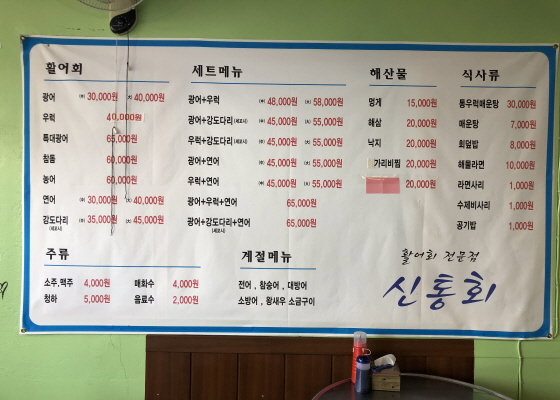 활어회
광어 (中) 30,000원 (大) 40,000원
우럭 40,000원
특대광어 65,000원
참돔 60,000원
농어 60,000원
연어 (中) 30,000원 (大) 40,000원
강도다리 (中) 35,000원 (大) 45,000원
(세꼬시)
세트메뉴
광어+우럭 (中) 48,000원 (大) 58,000원
광어+강도다리(세꼬시) (中) 45,000원 (大) 55,000원
우럭+강도다리(세꼬시) (中) 45,000원 (大) 55,000원
광어+연어 (中) 45,000원 (大) 55,000원
우럭+연어 (中) 45,000원 (大) 55,000원
광어+우럭+연어 65,000원
광어+강도다리+연어 65,000원
(세꼬시)
해산물
멍게 15,000원
해삼 20,000원
낙지 20,000원
가리비찜 20,000원
20,000원
식사류
통우럭매운탕 30,000원
매운탕 7,000원
회덮밥 8,000원
해물라면 10,000원
라면사리 1,000원
수제비사리 1,000원
공기밥 1,000원
주류
소주,맥주 4,000원 매화수 4,000원
청하 5,000원 음료수 2,000원
계절메뉴
전어 , 참숭어 , 대방어
소방어 , 왕새우 소금구이
활어회 전문점
신통회